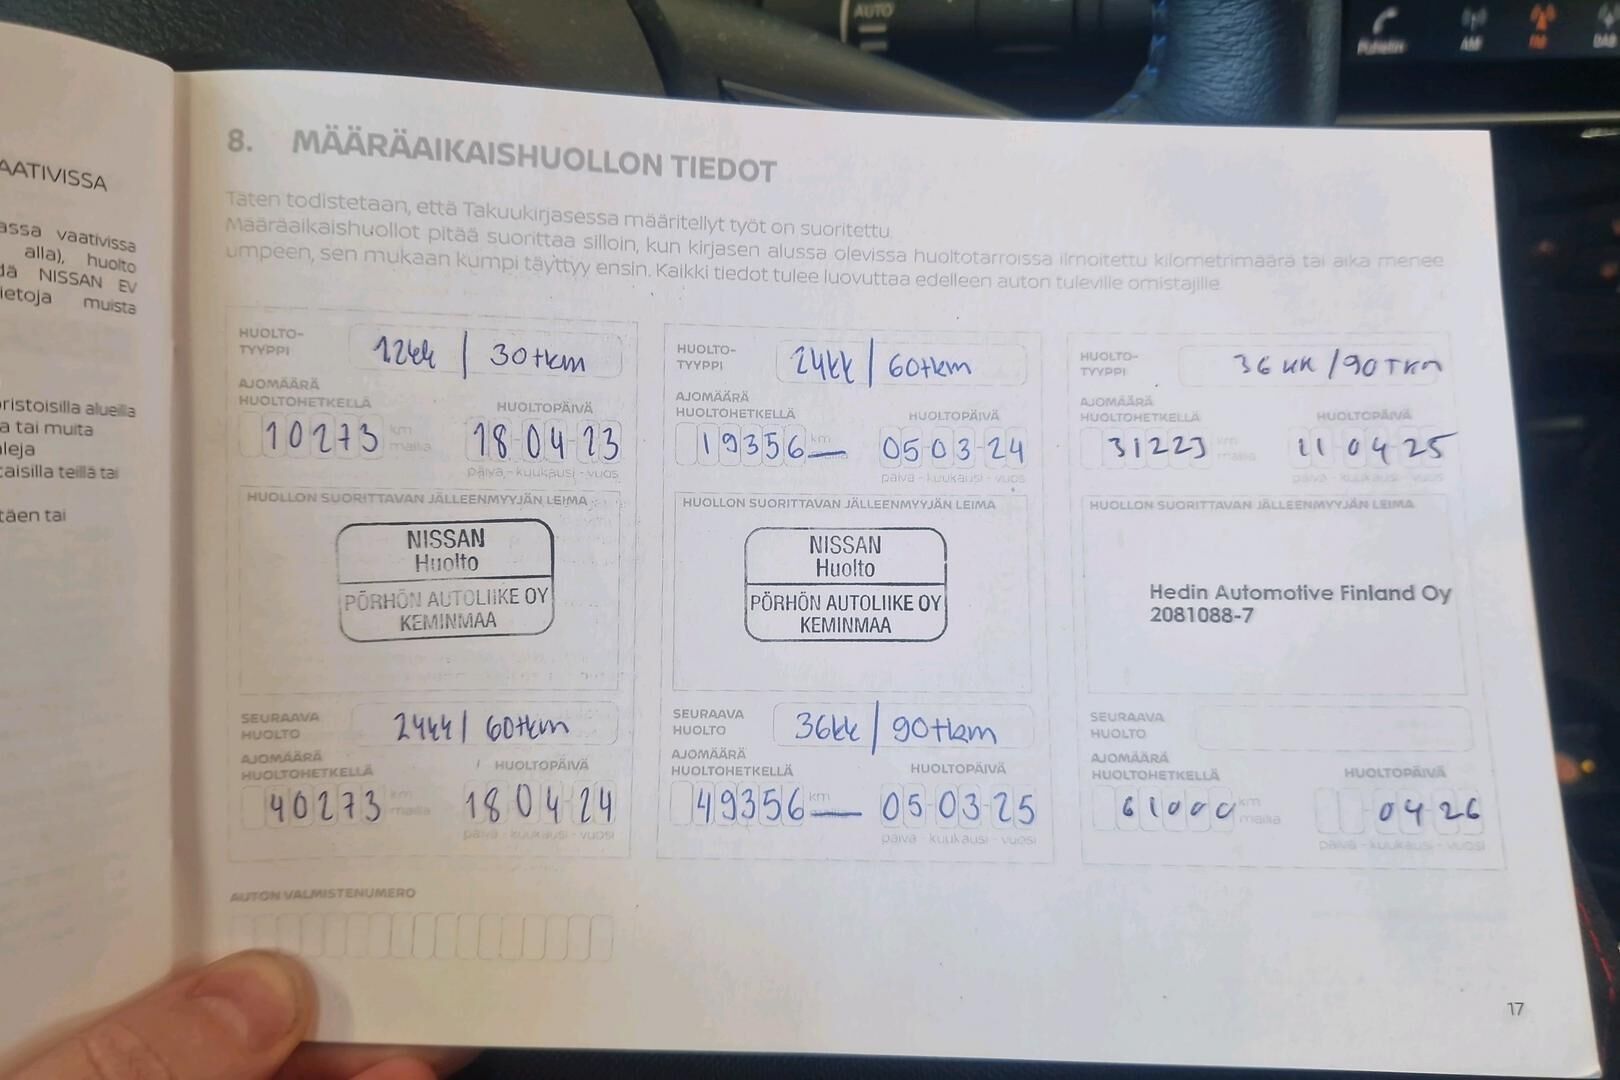 AUTO
Puhelin
AM
FM
DAB
AATIVISSA
assa vaativissa
alla), huolto
dä NISSAN EV
ietoja muista
ristoisilla alueilla
a tai muita
leja
taisilla teillä tai
täen tai
8. MÄÄRÄAIKAISHUOLLON TIEDOT
Täten todistetaan, että Takuukirjasessa määritellyt työt on suoritettu.
Määräaikaishuollot pitää suorittaa silloin, kun kirjasen alussa olevissa huoltotarroissa ilmoitettu kilometrimäärä tai aika menee
umpeen, sen mukaan kumpi täyttyy ensin. Kaikki tiedot tulee luovuttaa edelleen auton tuleville omistajille.
HUOLTO-
TYYPPI
12kk / 30tkm
AJOMÄÄRÄ
HUOLTOHETKELLÄ
HUOLTOPÄIVÄ
10273 km
mailia
18 04 23
päivä - kuukausi - vuosi
HUOLLON SUORITTAVAN JÄLLEENMYYJÄN LEIMA
NISSAN
Huolto
PÖRHÖN AUTOLIIKE OY
KEMINMAA
SEURAAVA
HUOLTO
24kk / 60tkm
AJOMÄÄRÄ
HUOLTOHETKELLÄ
HUOLTOPÄIVÄ
40273 km
mailia
18 04 24
päivä - kuukausi - vuosi
HUOLTO-
TYYPPI
24kk / 60tkm
AJOMÄÄRÄ
HUOLTOHETKELLÄ
HUOLTOPÄIVÄ
19356 km
05-03-24
päivä - kuukausi - vuosi
HUOLLON SUORITTAVAN JÄLLEENMYYJÄN LEIMA
NISSAN
Huolto
PÖRHÖN AUTOLIIKE OY
KEMINMAA
SEURAAVA
HUOLTO
36kk / 90tkm
AJOMÄÄRÄ
HUOLTOHETKELLÄ
HUOLTOPÄIVÄ
49356 km
05-03-25
päivä - kuukausi - vuosi
HUOLTO-
TYYPPI
36 KK / 90 TKM
AJOMÄÄRÄ
HUOLTOHETKELLÄ
HUOLTOPÄIVÄ
31223 km
mailia
11 04 25
päivä - kuukausi - vuosi
HUOLLON SUORITTAVAN JÄLLEENMYYJÄN LEIMA
Hedin Automotive Finland Oy
2081088-7
SEURAAVA
HUOLTO
AJOMÄÄRÄ
HUOLTOHETKELLÄ
HUOLTOPÄIVÄ
61000 km
mailia
04 26
päivä - kuukausi - vuosi
AUTON VALMISTENUMERO
17